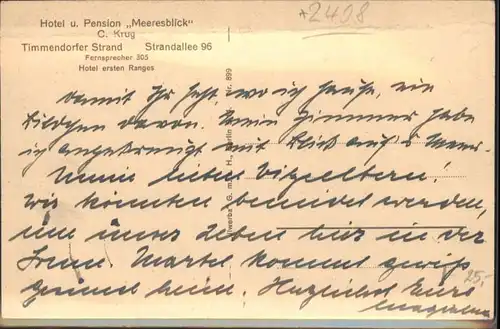 *2408
Hotel u. Pension „Meeresblick"
C. Krug
Timmendorfer Strand Strandallee 96
Fernsprecher 305
Hotel ersten Ranges
Nr. 899
damit Ihr seht, wo ich hause, ein
Bildchen davon. Mein Zimmer habe
ich angekreuzt mit Blick auf's Meer.
Meine lieben Vizeeltern!
Wir könnten beneidet werden,
um unser Leben hier in der
Sonne. Martel kommt gewiß
gesund heim. Herzlichst Eure
25.-